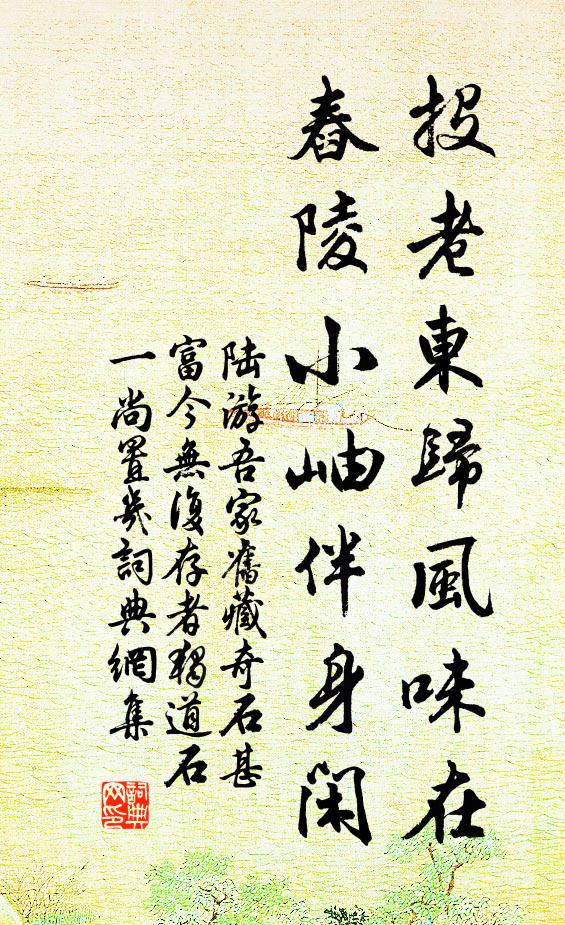 投老東歸風味在
舂陵小岫伴身閑
陸游吾家舊藏奇石甚
富今無復存者獨道石
一尚置几詞典網集
詞典網印